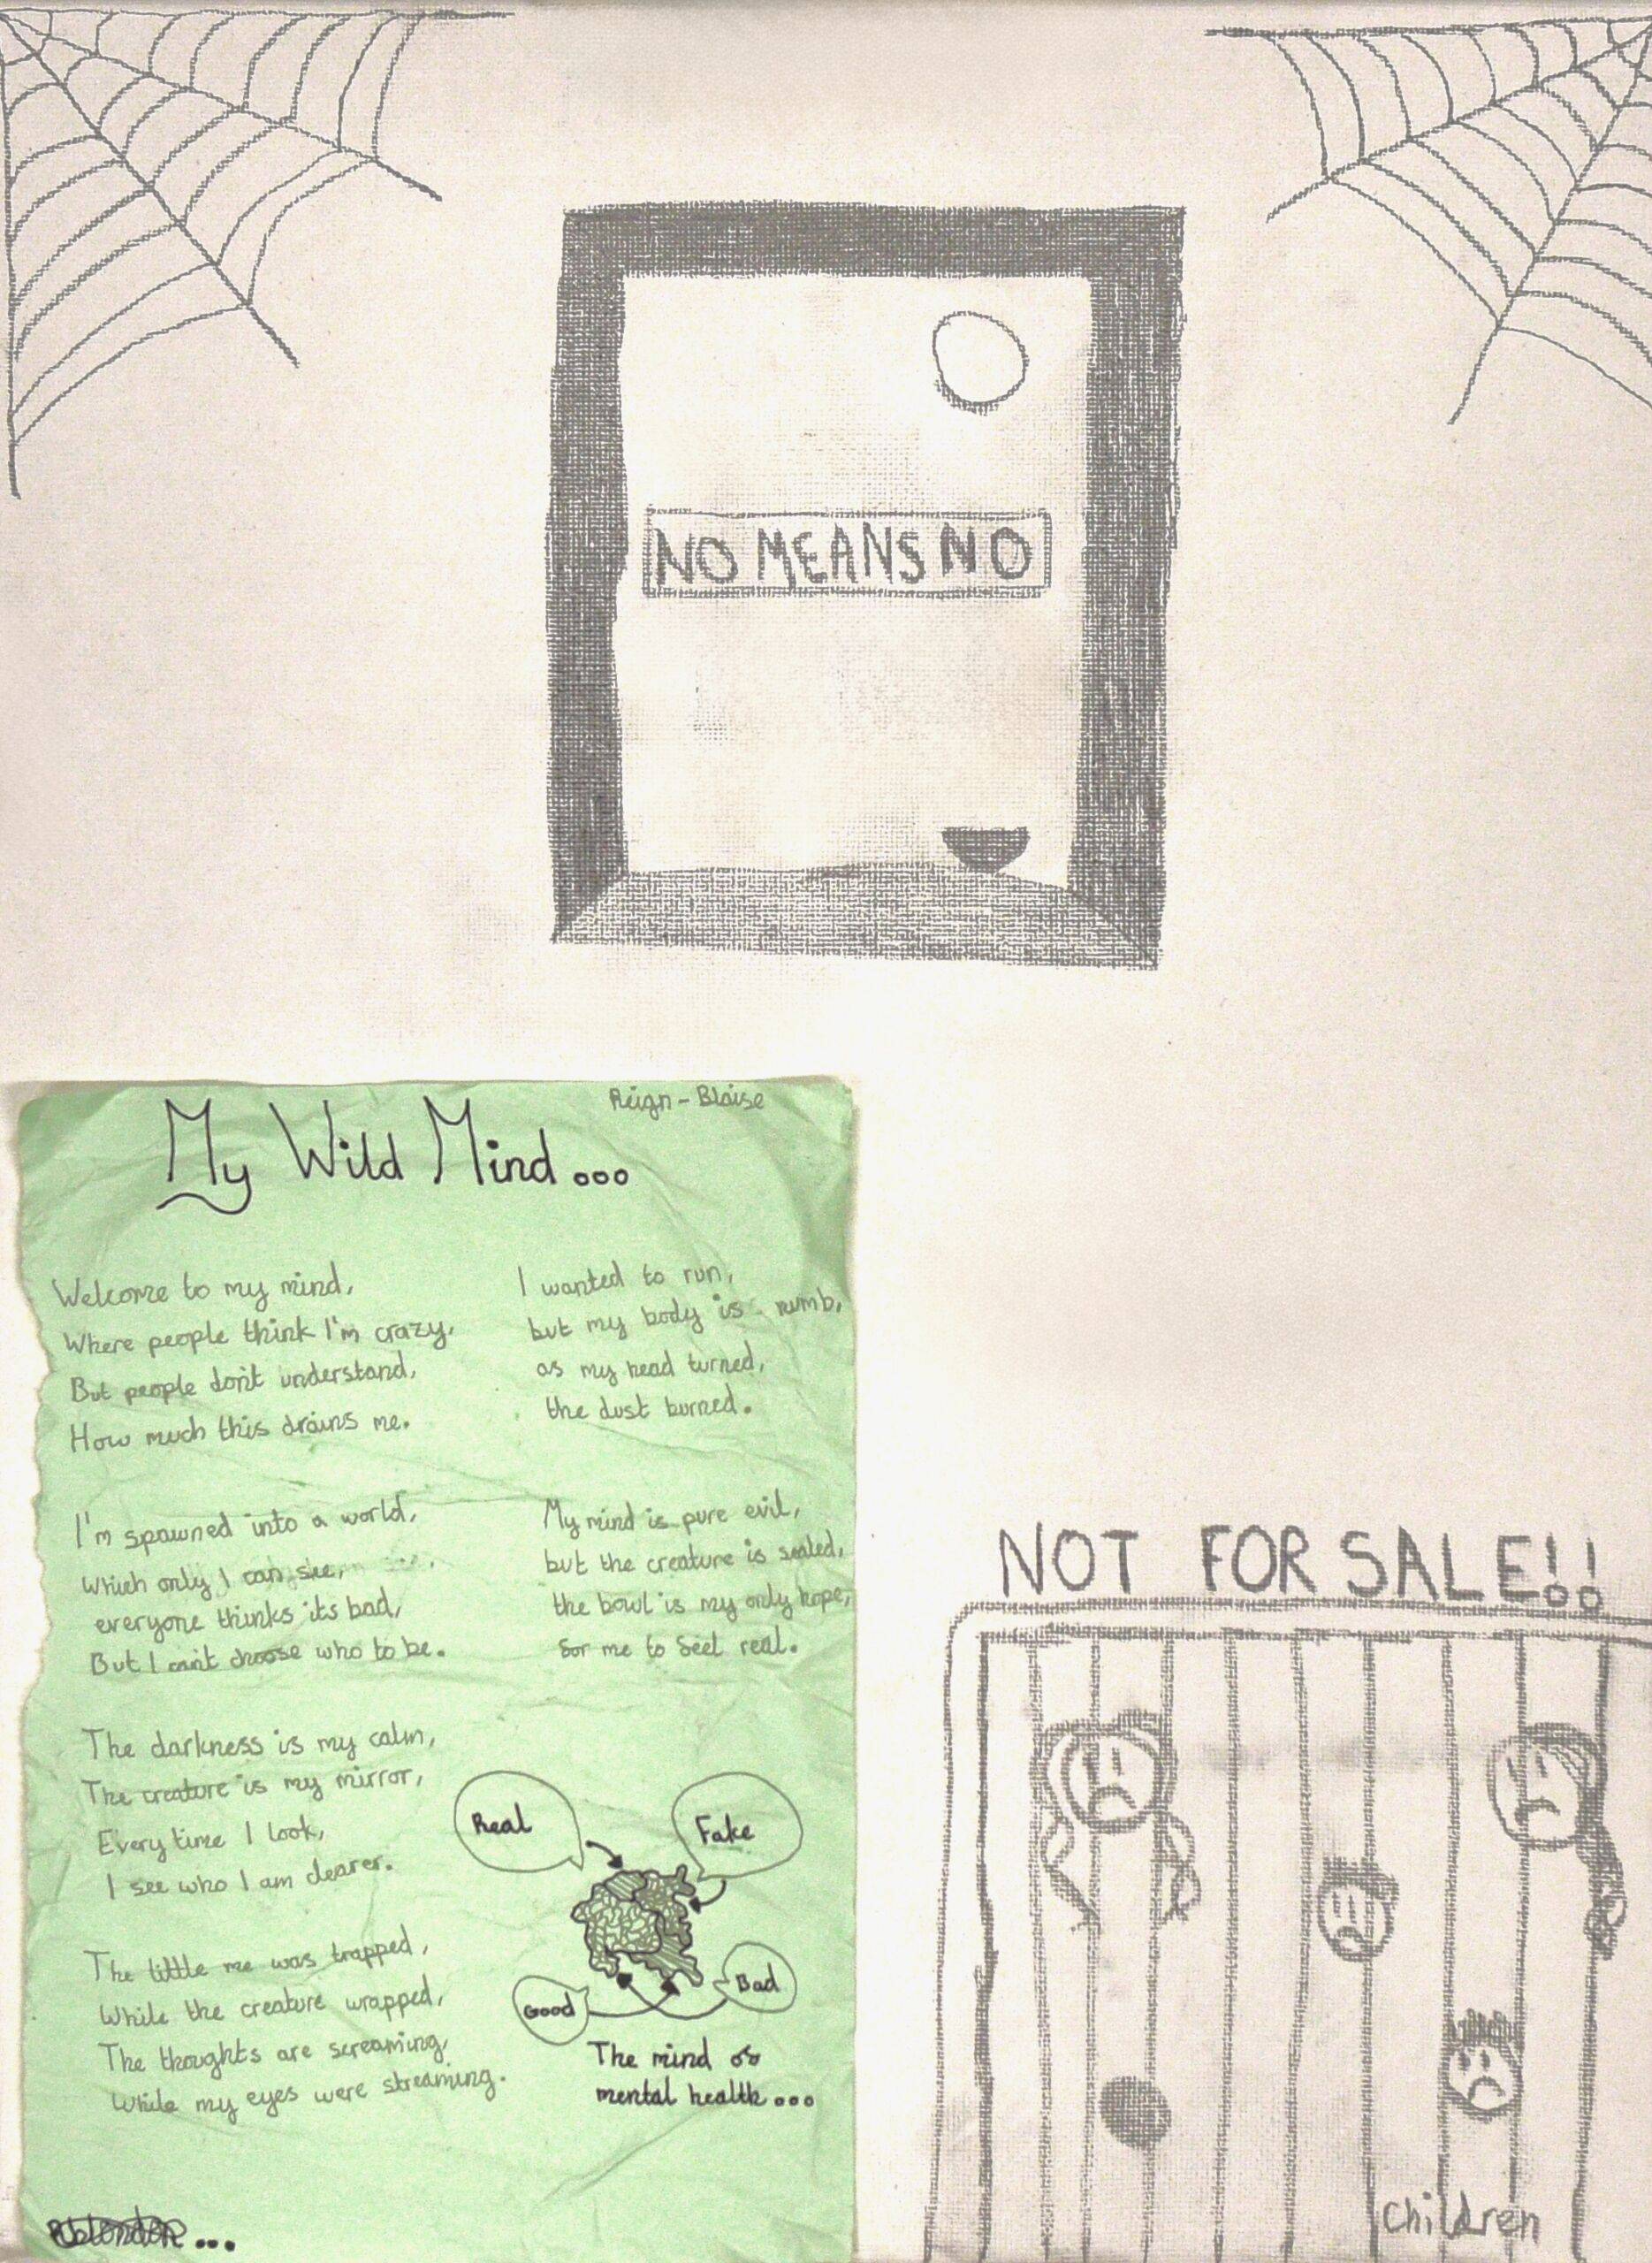 NO MEANS NO
Reign - Blaise
My Wild Mind...
Welcome to my mind,
Where people think I'm crazy.
But people don't understand,
How much this drains me.
I'm spawned into a world,
Which only I can see,
everyone thinks its bad,
But I can't choose who to be.
The darkness is my calm,
The creature is my mirror,
Every time I look,
I see who I am clearer.
The little me was trapped,
While the creature wrapped,
The thoughts are screaming,
While my eyes were streaming.
I wanted to run,
but my body is numb,
as my head turned,
the dust burned.
My mind is pure evil,
but the creature is sealed,
the bowl is my only hope,
for me to feel real.
Real
Fake
Good
Bad
The mind of
mental health...
NOT FOR SALE!!
Children